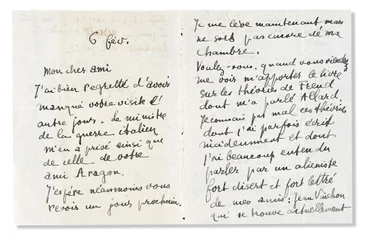 6 fév.
Mon cher ami
J'ai bien regretté d'avoir
manqué votre visite l'
autre jour. Le ministre
de la guerre italien
m'en a privé ainsi que
de celle de votre
ami Aragon.
J'espère néanmoins vous
revoir un jours prochain.
Je me lève maintenant mais
ne sors pas encore de ma
chambre.
Voulez-vous, quand vous viendrez
me voir m'apporter le livre
sur les théories de Freud
dont m'a parlé Allard
Je connais pas mal ces théories
dont j'ai parfois écrit
incidemment et dont
j'ai beaucoup entendu
parler par un aliéniste
fort disert et fort lettré
de mes amis : Jean Vinchon
qui se trouve actuellement